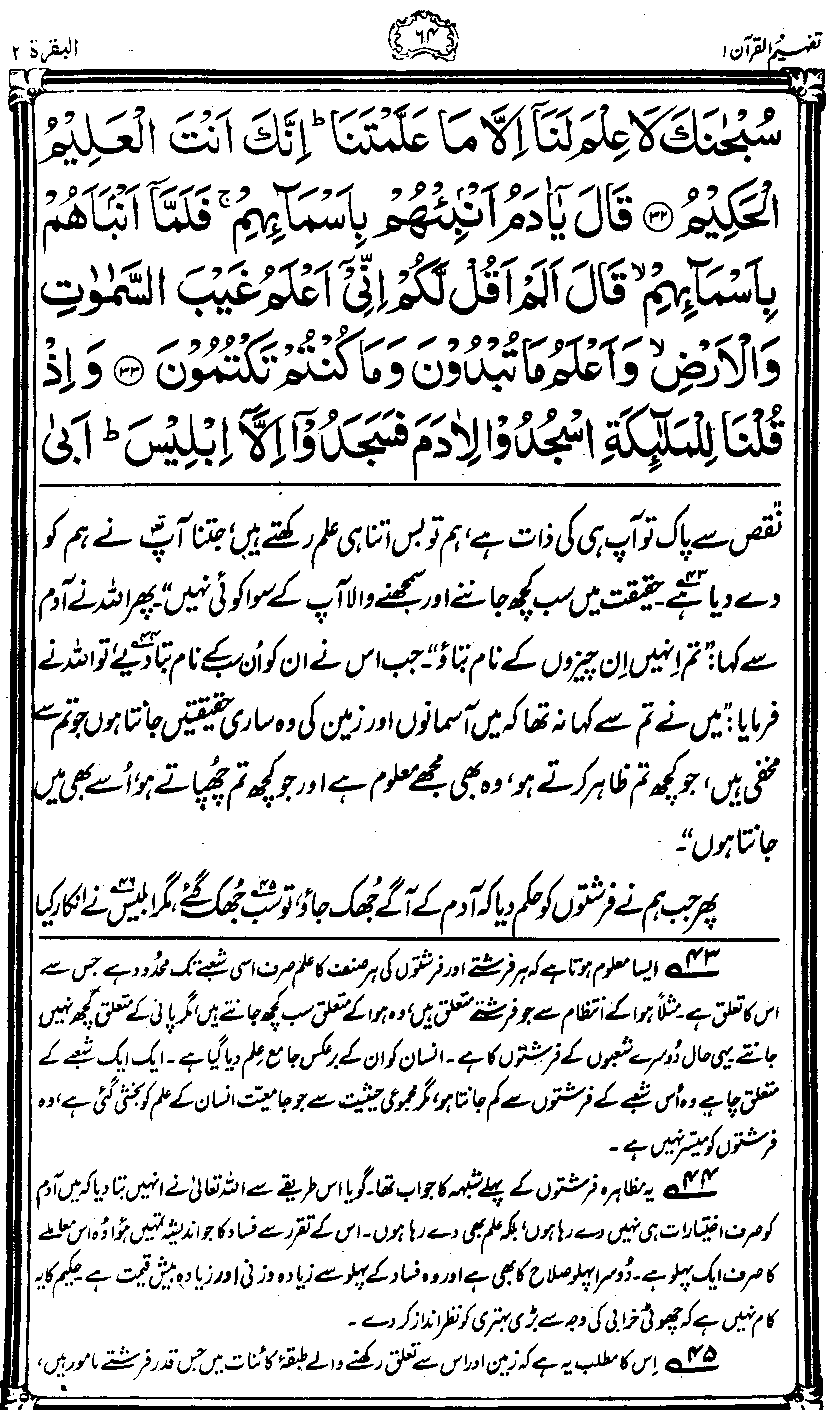 تفہیم القرآن ۱
۶۴
البقرۃ ۲
سُبْحٰنَكَ لَا عِلْمَ لَنَاۤ اِلَّا مَا عَلَّمْتَنَا ؕ اِنَّكَ اَنْتَ الْعَلِيْمُ
الْحَكِيْمُ ﴿۳۲﴾ قَالَ يٰۤاٰدَمُ اَنْۢبِئْهُمْ بِاَسْمَآىِٕهِمْ ۚ فَلَمَّاۤ اَنْۢبَاَهُمْ
بِاَسْمَآىِٕهِمْ ۙ قَالَ اَلَمْ اَقُلْ لَّكُمْ اِنِّيْۤ اَعْلَمُ غَيْبَ السَّمٰوٰتِ
وَالْاَرْضِ ۙ وَاَعْلَمُ مَا تُبْدُوْنَ وَمَا كُنْتُمْ تَكْتُمُوْنَ ﴿۳۳﴾ وَاِذْ
قُلْنَا لِلْمَلٰٓىِٕكَةِ اسْجُدُوْا لِاٰدَمَ فَسَجَدُوْۤا اِلَّاۤ اِبْلِيْسَ ؕ اَبٰى
نقص سے پاک تو آپ ہی کی ذات ہے، ہم تو بس اتنا ہی علم رکھتے ہیں، جتنا آپ نے ہم کو
دے دیا ہے۴۳۔ حقیقت میں سب کچھ جاننے اور سمجھنے والا آپ کے سوا کوئی نہیں“۔ پھر اللہ نے آدم
سے کہا: ”تم اِنہیں اِن چیزوں کے نام بتاؤ“۔ جب اس نے ان کو اُن سب کے نام بتا دیے۴۴، تو اللہ نے
فرمایا: ”میں نے تم سے کہا نہ تھا کہ میں آسمانوں اور زمین کی وہ ساری حقیقتیں جانتا ہوں جو تم سے
مخفی ہیں، جو کچھ تم ظاہر کرتے ہو، وہ بھی مجھے معلوم ہے اور جو کچھ تم چھُپاتے ہو، اُسے بھی میں
جانتا ہوں“۔
پھر جب ہم نے فرشتوں کو حکم دیا کہ آدم کے آگے جُھک جاؤ، تو سب۴۵ جُھک گئے، مگر ابلیس۴۶ نے انکار کیا
۴۳ ایسا معلوم ہوتا ہے کہ ہر فرشتے اور فرشتوں کی ہر صنف کا علم صرف اسی شعبے تک محدود ہے جس سے
اس کا تعلق ہے۔ مثلاً ہوا کے انتظام سے جو فرشتے متعلق ہیں، وہ ہوا کے متعلق سب کچھ جانتے ہیں، مگر پانی کے متعلق کچھ نہیں
جانتے یہی حال دُوسرے شعبوں کے فرشتوں کا ہے۔ انسان کو ان کے برعکس جامع علم دیا گیا ہے۔ ایک ایک شعبے کے
متعلق چاہے وہ اُس شعبے کے فرشتوں سے کم جانتا ہو، مگر مجموعی حیثیت سے جو جامعیّت انسان کے علم کو بخشی گئی ہے، وہ
فرشتوں کو میسّر نہیں ہے۔
۴۴ یہ مظاہرہ فرشتوں کے پہلے شبہہ کا جواب تھا۔ گویا اس طریقے سے اللہ تعالیٰ نے انہیں بتا دیا کہ میں آدم
کو صرف اختیارات ہی نہیں دے رہا ہوں، بلکہ علم بھی دے رہا ہوں۔ اس کے تقرر سے فساد کا جو اندیشہ تمہیں ہُوا وُہ اس معاملے
کا صرف ایک پہلو ہے۔ دُوسرا پہلو صلاح کا بھی ہے اور وہ فساد کے پہلو سے زیادہ وزنی اور زیادہ بیش قیمت ہے۔ حکیم کا یہ
کام نہیں ہے کہ چھوٹی خرابی کی وجہ سے بڑی بہتری کو نظر انداز کر دے۔
۴۵ اِس کا مطلب یہ ہے کہ زمین اور اس سے تعلق رکھنے والے طبقۂ کائنات میں جس قدر فرشتے مامور ہیں،